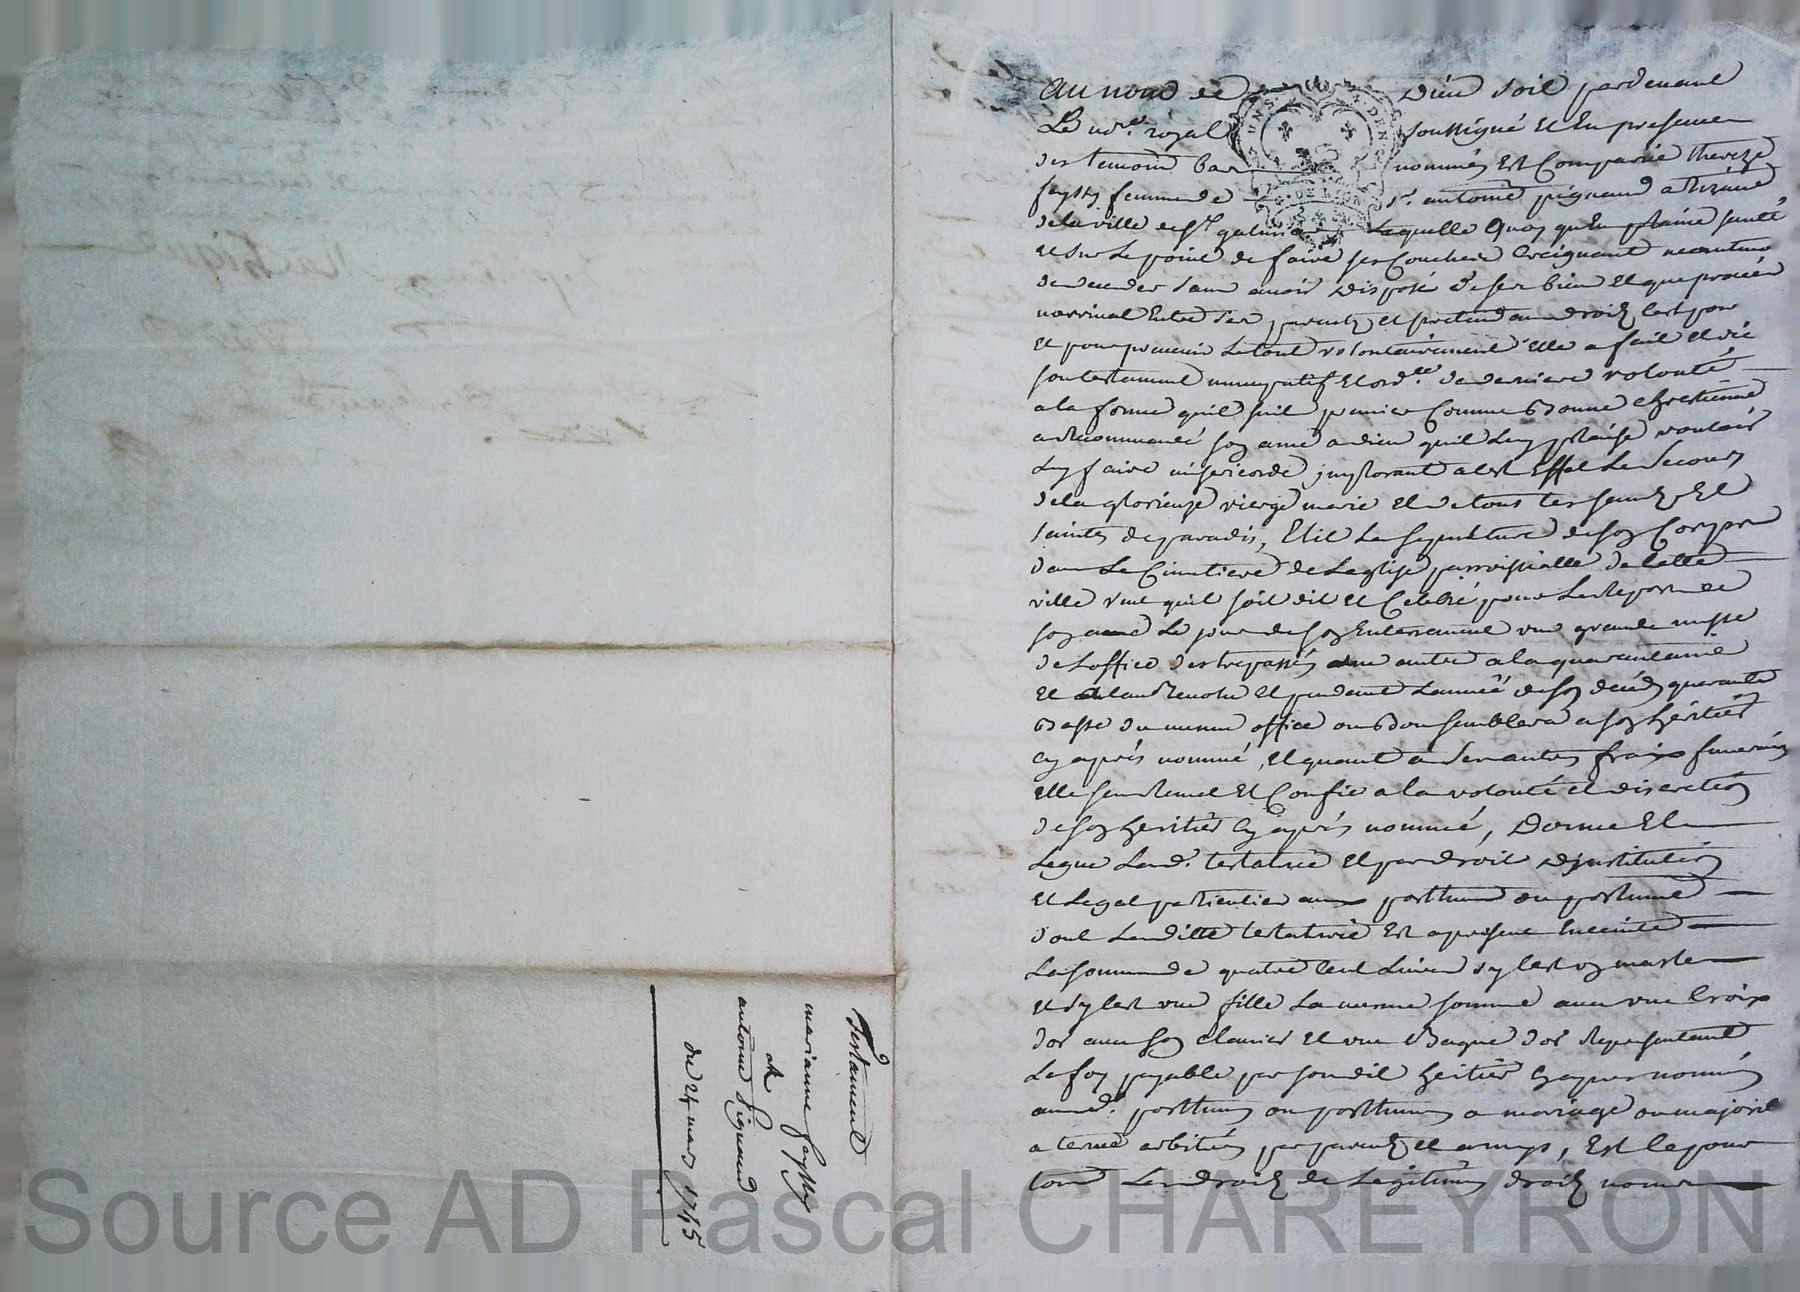 Au nom de Dieu soit pardevant
Le no.re royal soussigné et en presence
des temoins bas nommés est comparüe thereze
feyssy femme de s.r antoine pignaud artizans
de la ville de s.t galmier laquelle quoy qu'en plaine santé
et sur le point de faire ses couches creignant
de deceder sans avoir disposé de ses biens et que procés
narrivat entre ses parents et pretendans droits cest pour
et pour prevenir le tout volontairement elle a fait et
son testament nuncupatif et ord.re de derniere volonté
a la forme quil suit premier comme bonne chretienne
a recommandé son ame a dieu quil luy plaise vouloir
luy faire misericorde implorant a cest effet le secours
de la glorieuse vierge marie et de tous les saints et
saintes de paradis, elit la sepulture de son corps
dans le cimetiere de leglise parroissialle de cette
ville veut quil soit dit et celebré pour le repos de
son ame le jour de son enterrement une grande messe
de loffice des trepassés une autre a la quarantaine
et au bout de lan revolu et pendant lannée de son deceds quarante
basse du meme office ou bon semblera a son heritier
cy aprés nommé, et quant a ses autres fraix funeraires
elle sen remet et confie a la volonté et discretion
de son heritier cy aprés nommé, Donne et
legue lad. testatrice et par droit dinstitution
et legat particulier aux posthume ou postume
dont laditte testatrice est a present enceinte
la somme de quatre cent livres sy cest un masle
et sy cest une fille la meme somme avec une croix
dor avec son clavier et une bague dor representant
la foy payable par sondit heritier cy apres nommé
aud. posthume ou posthumes a mariage ou majorité
a terme arbitrés par parents et amys, est ce pour
tous les droits de legitime droits noms
Testament
marianne feyssy
a
antoine Pignaud
du 24 mars 1745
Source AD Pascal CHAREYRON